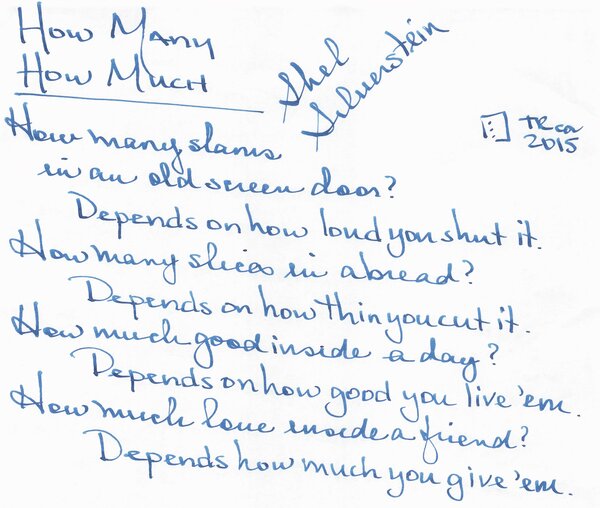 How Many
How Much
Shel
Silverstein
TRca
2015
How many slams
in an old screen door?
Depends on how loud you shut it.
How many slices in a bread?
Depends on how thin you cut it.
How much good inside a day?
Depends on how good you live 'em.
How much love inside a friend?
Depends how much you give 'em.